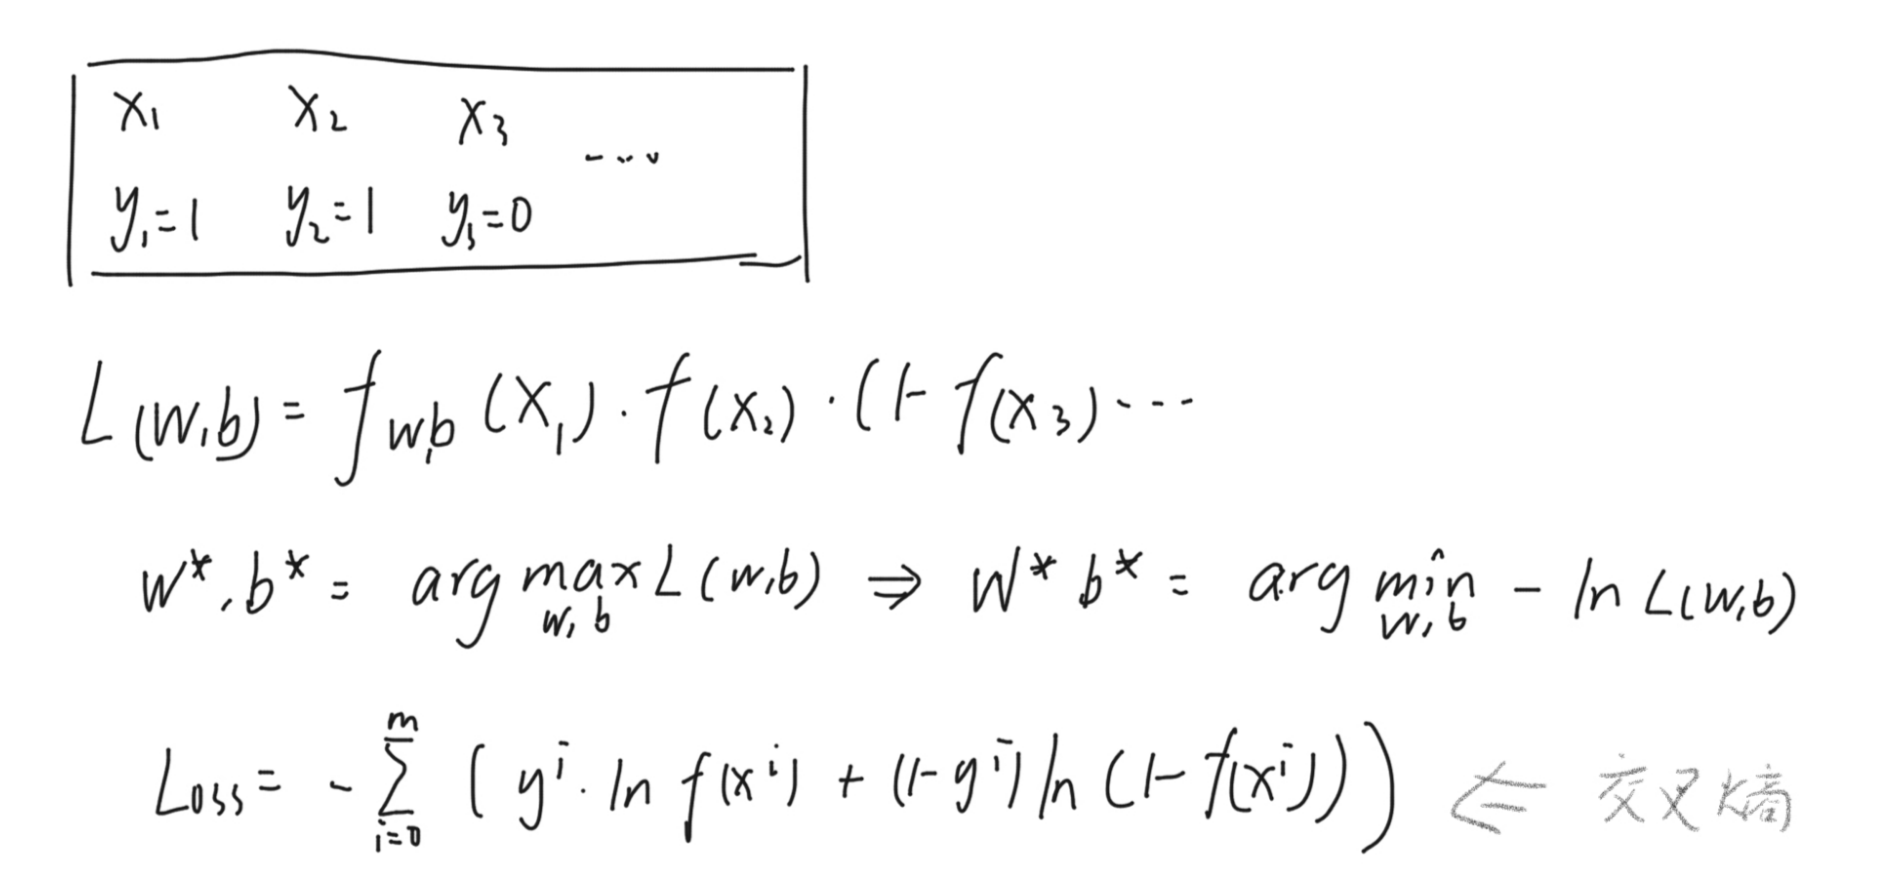 x₁ x₂ x₃ ....
y₁=1 y₂=1 y₃=0
L(w,b) = f w,b (x₁) · f(x₂) · (1-f(x₃) ...
w*, b* = arg max L(w,b) ⇒ w* b* = arg min - ln L(w,b)
w, b w, b
Loss = - ∑ᵐᵢ₌₀ ( yⁱ · ln f(xⁱ) + (1-yⁱ) ln (1-f(xⁱ)) ) ⇐ 交叉熵